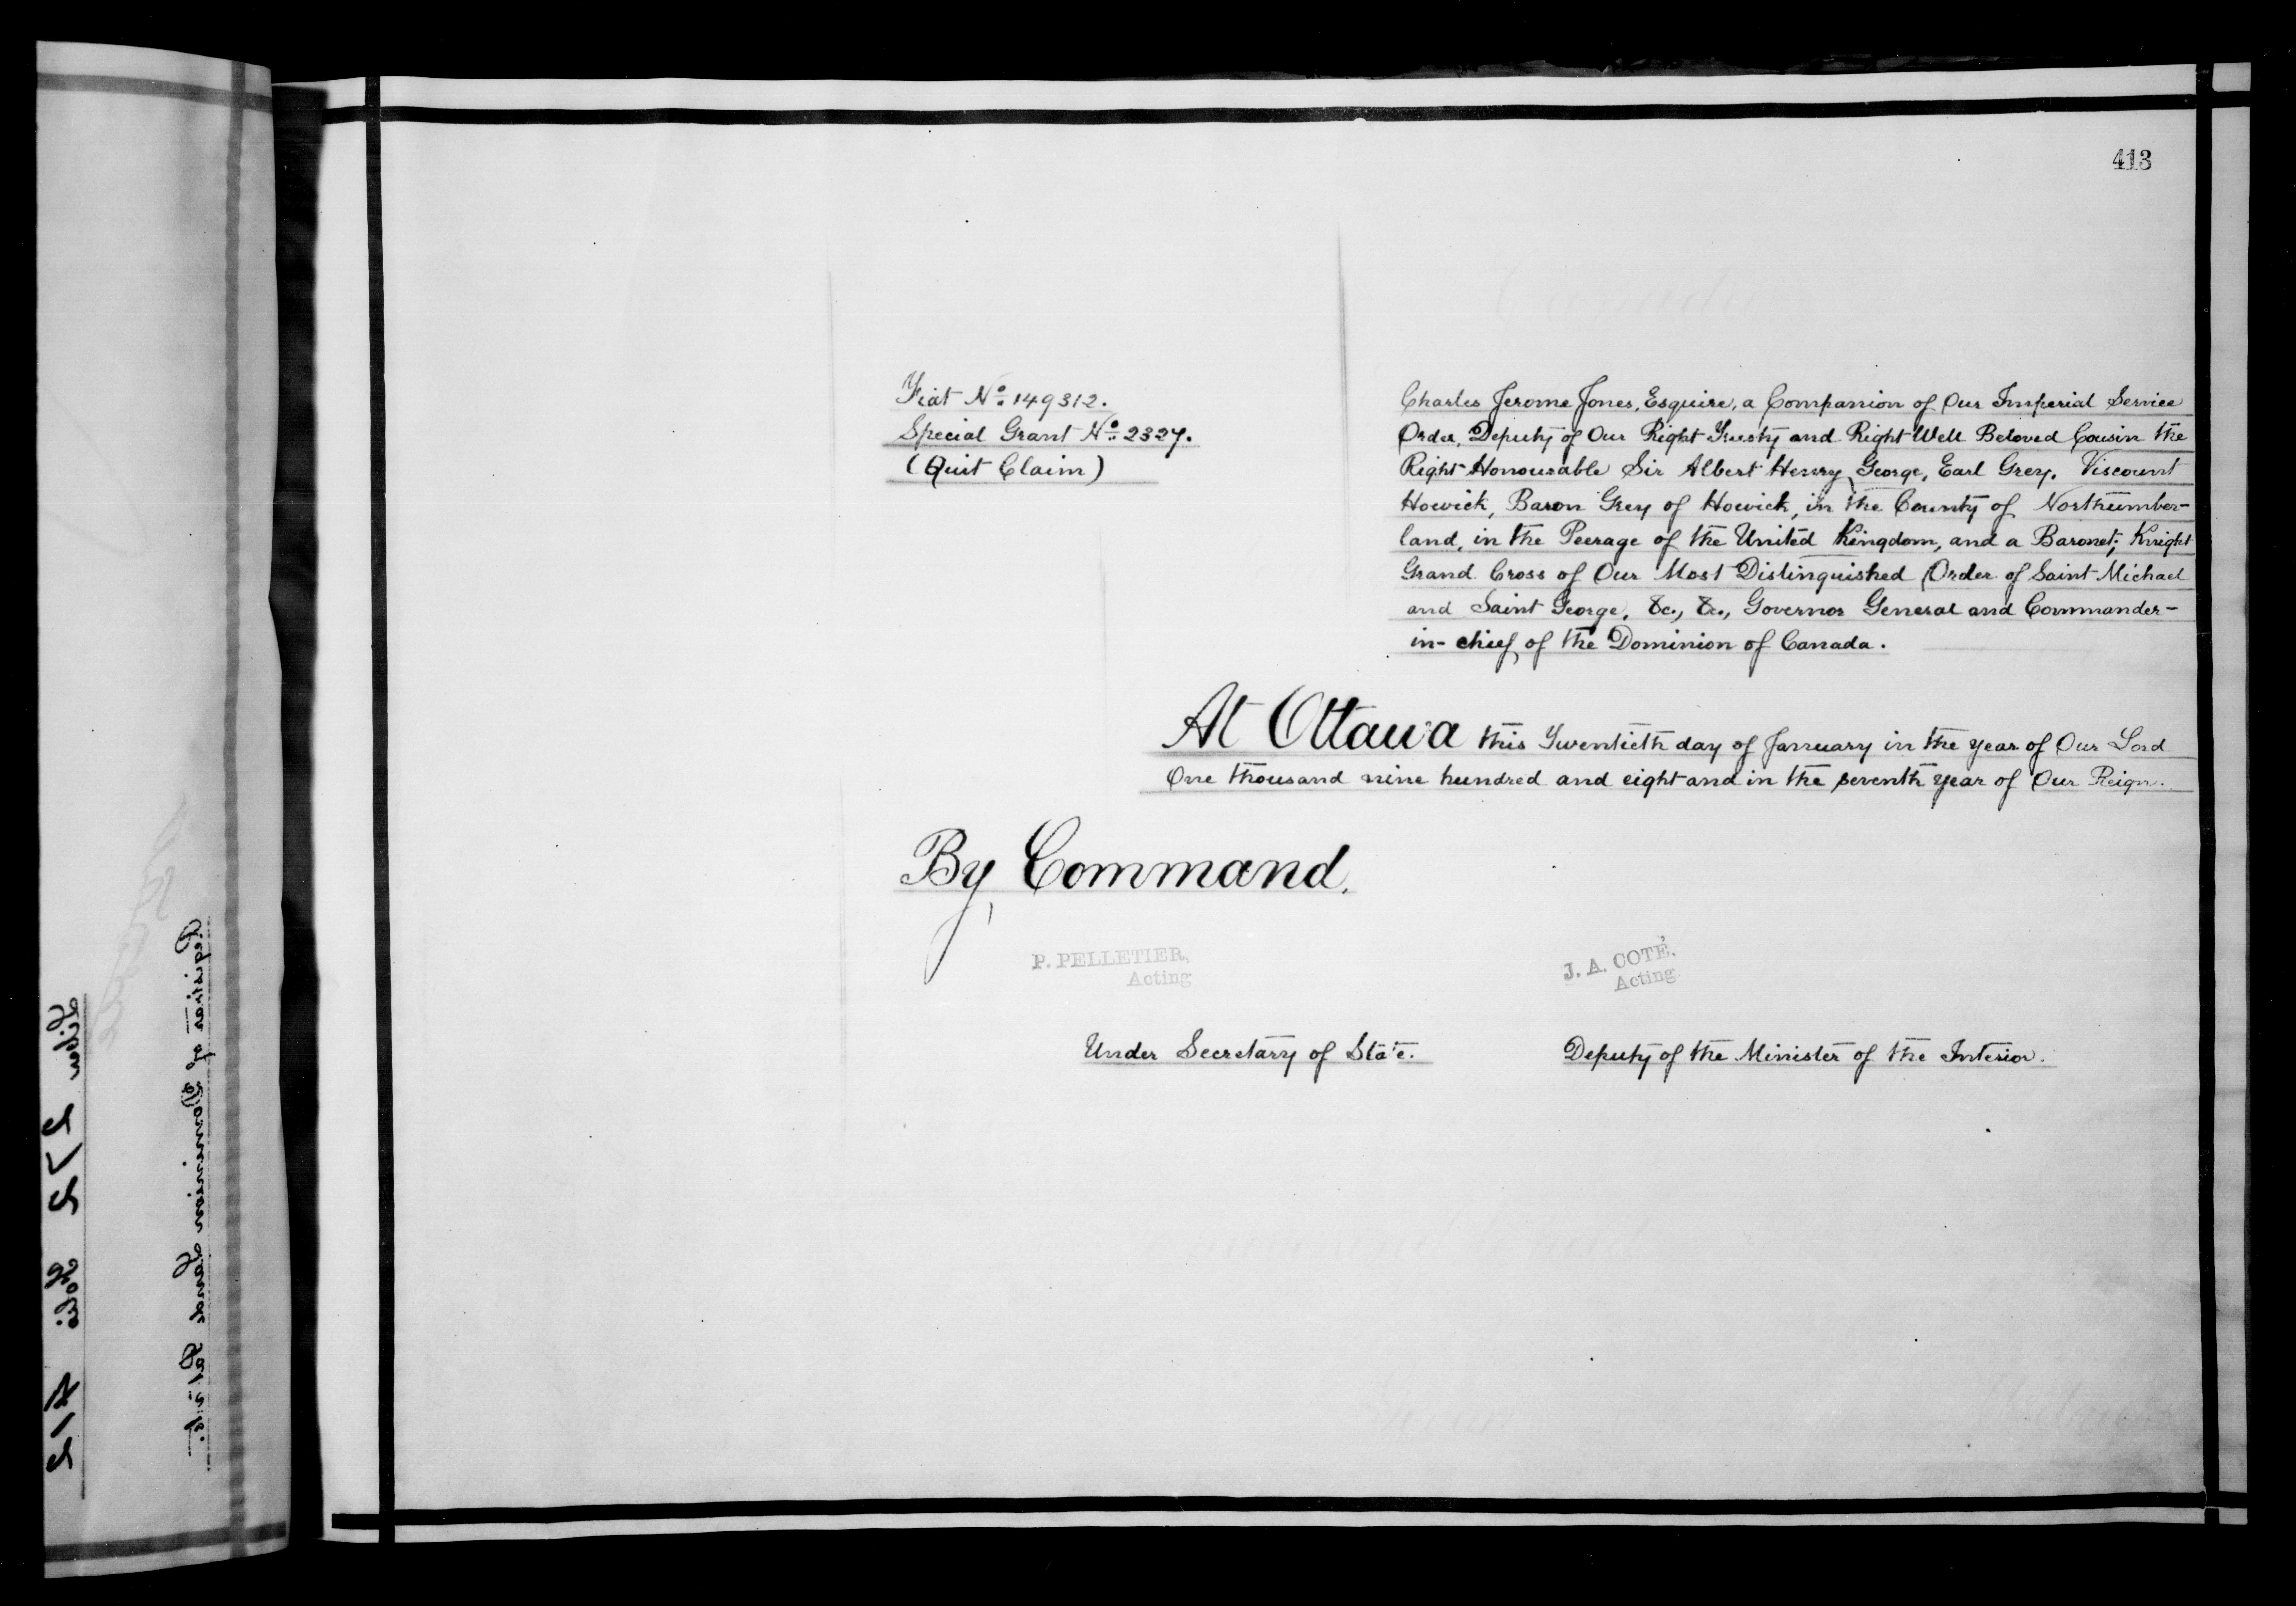 413
Fiat No. 149312.
Special Grant No. 2327.
(Quit Claim)
Charles Jerome Jones, Esquire, a Companion of Our Imperial Service
Order, Deputy of Our Right Trusty and Right Well Beloved Cousin the
Right Honourable Sir Albert Henry George, Earl Grey, Viscount
Howick, Baron Grey of Howick, in the County of Northumber-
land, in the Peerage of the United Kingdom, and a Baronet; Knight
Grand Cross of Our Most Distinguished Order of Saint Michael
and Saint George, &c., &c., Governor General and Commander-
in-chief of the Dominion of Canada.
At Ottawa this Twentieth day of January in the year of Our Lord
One thousand nine hundred and eight and in the seventh year of Our Reign.
By Command.
P. PELLETIER,
Acting
Under Secretary of State.
J. A. COTÉ,
Acting
Deputy of the Minister of the Interior.
Registrar of Dominion Lands Patents.
Liber 272 Folio 412